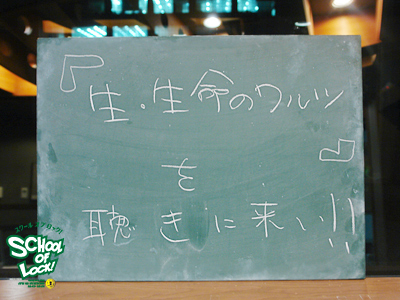 『生・生命のワルツ』
を
聴きに来い!!
スクール・オブ・ロック!
SCHOOL
OF
LOCK!